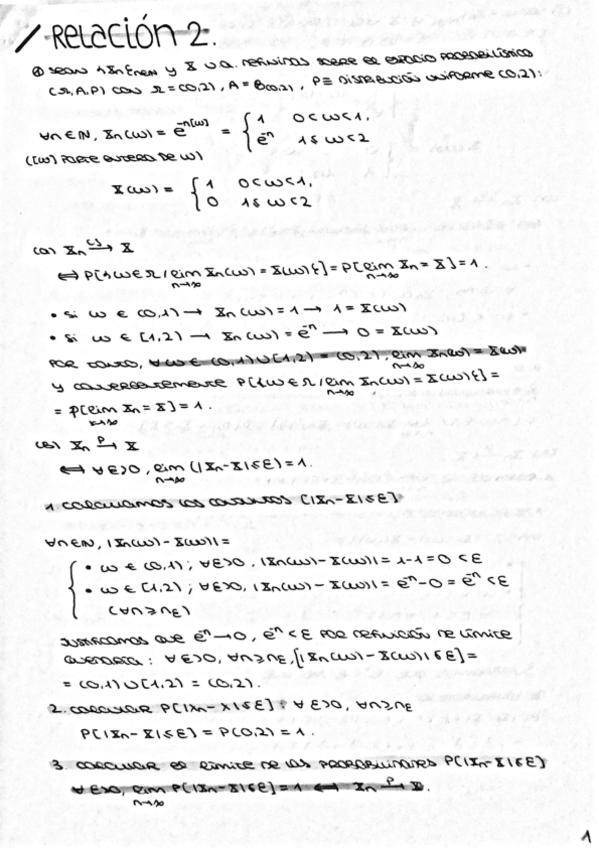 Relación 2.
① sean {Xn}n∈ℕ y X v.a. definidas sobre el espacio probabilístico
(Ω, A, P) con Ω = (0,2), A = B(0,2), P ≡ Distribución uniforme (0,2):
∀n∈ℕ, Xn(ω) = e^{-n[ω]} = { 1 0<ω<1,
e^{-n} 1≤ω<2
([ω] parte entera de ω)
X(ω) = { 1 0<ω<1,
0 1≤ω<2
(a) Xn →^{c.s} X
⟺ P[{ω∈Ω / lim_{n→∞} Xn(ω) = X(ω)}] = P[lim_{n→∞} Xn = X] = 1.
• si ω ∈ (0,1) → Xn(ω) = 1 → 1 = X(ω)
• si ω ∈ [1,2) → Xn(ω) = e^{-n} → 0 = X(ω)
Por tanto, ∀ω∈ (0,1)∪[1,2) = (0,2), lim_{n→∞} Xn(ω) = X(ω)
y consecuentemente P[{ω∈Ω / lim_{n→∞} Xn(ω) = X(ω)}] =
= P[lim_{n→∞} Xn = X] = 1.
(b) Xn →^{P} X
⟺ ∀ε>0, lim_{n→∞} (|Xn-X|≤ε) = 1.
1. calculamos los conjuntos [|Xn-X|≤ε]
∀n∈ℕ, |Xn(ω) - X(ω)| =
{ • ω ∈ (0,1); ∀ε>0, |Xn(ω) - X(ω)| = 1-1 = 0 < ε
• ω ∈ [1,2); ∀ε>0, |Xn(ω) - X(ω)| = e^{-n} - 0 = e^{-n} < ε
(∀n ≥ nε)
Justificamos que e^{-n} → 0, e^{-n} < ε por definición de límite
: ∀ε>0, ∀n≥nε, [|Xn(ω) - X(ω)|≤ε] =
= (0,1)∪[1,2) = (0,2).
2. calcular P[|Xn-X|≤ε] ∀ε>0, ∀n≥nε
P[|Xn-X|≤ε] = P(0,2) = 1.
3. calcular el límite de las probabilidades P[|Xn-X|≤ε]
∀ε>0, lim_{n→∞} P[|Xn-X|≤ε] = 1 ⟺ Xn →^{P} X.
1